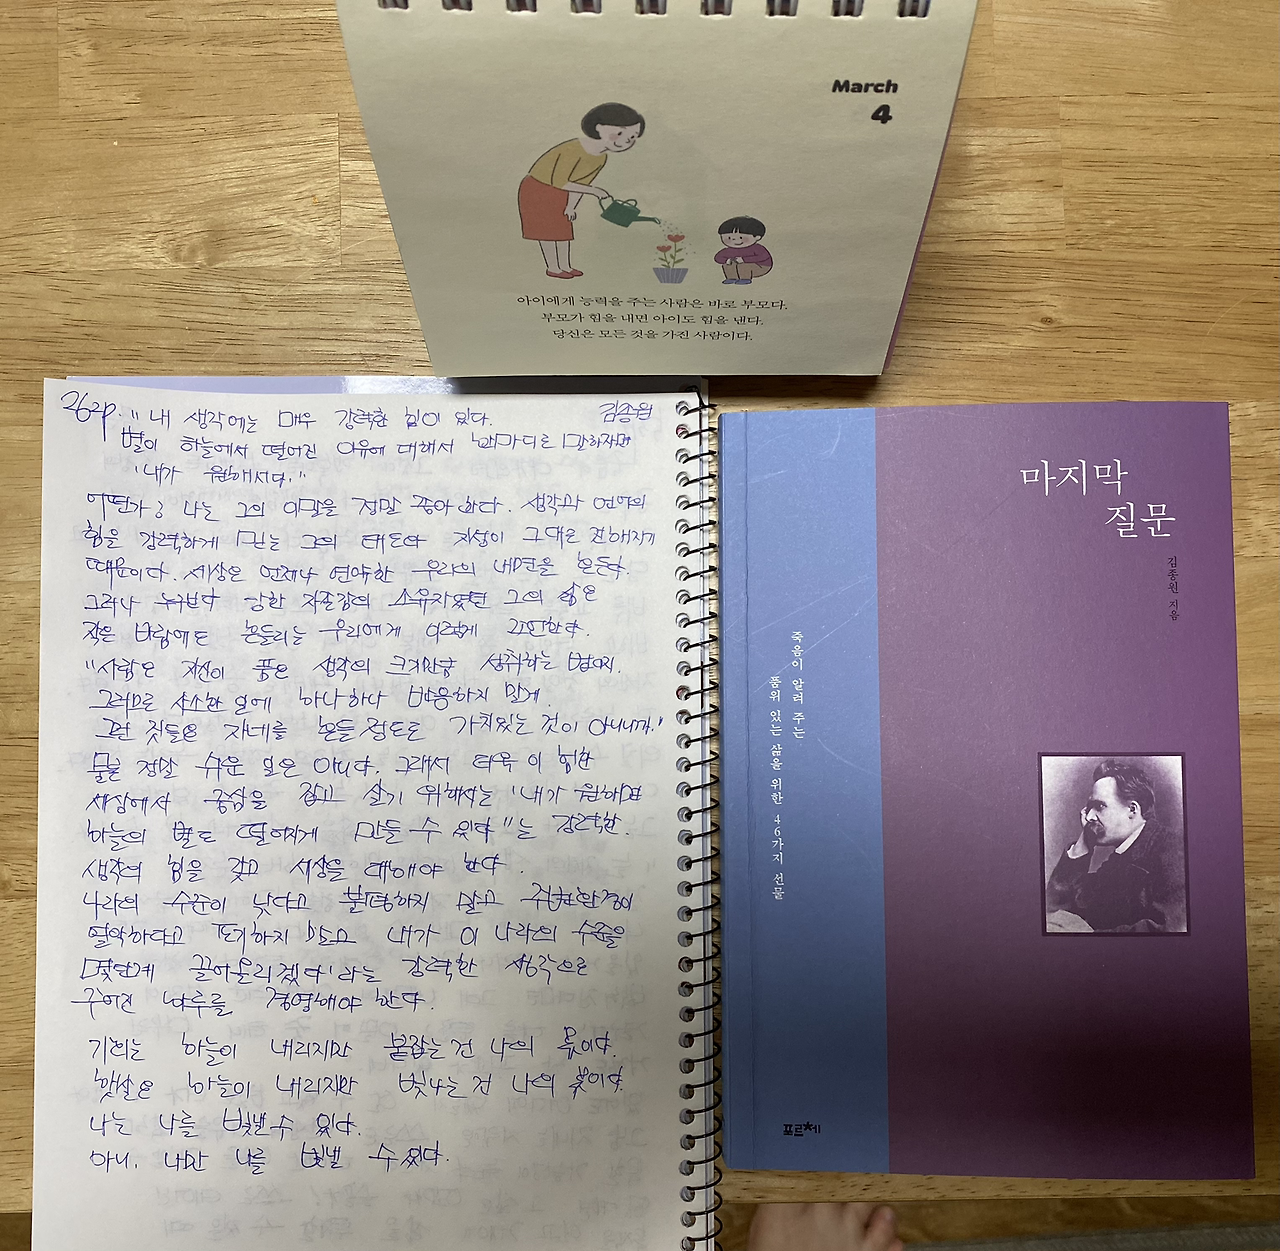 March
4
아이에게 능력을 주는 사람은 바로 부모다.
부모가 힘을 내면 아이도 힘을 낸다.
당신은 모든 것을 가진 사람이다.
262p. "내 생각에는 매우 강력한 힘이 있다. 김종원
별이 하늘에서 떨어진 이유에 대해서 한마디로 말하자면
'내가 원해서다.'"
어떤가? 나는 그의 이 말을 정말 좋아한다. 생각과 언어의
힘을 강력하게 믿는 그의 태도와 지성이 그대로 전해지기
때문이다. 세상은 언제나 연약한 우리의 내면을 흔든다.
그러나 누구보다 강한 자존감의 소유자였던 그의 삶은
작은 바람에도 흔들리는 우리에게 이렇게 조언한다.
"사람은 자신이 품은 생각의 크기만큼 성취하는 법이지.
그러므로 사소한 일에 하나하나 반응하지 말게.
그런 것들은 자네를 흔들 정도로 가치있는 것이 아니니까."
물론 정말 쉬운 일은 아니다. 그래서 더욱 이 험한
세상에서 중심을 잡고 살기 위해서는 '내가 원하면
하늘의 별도 떨어지게 만들 수 있다"는 강력한.
생각의 힘을 갖고 세상을 대해야 한다.
나라의 수준이 낮다고 불평하지 말고 주변환경이
열악하다고 포기하지 말고 내가 이 나라의 수준을
몇단계 끌어올리겠다'라는 강력한 생각으로
주어진 하루를 경영해야 한다.
기회는 하늘이 내리지만 붙잡는 건 나의 몫이다.
햇살은 하늘이 내리지만 빛나는 건 나의 몫이다.
나는 나를 빛낼 수 있다.
아니, 나만 나를 빛낼 수 있다.
마지막
질문
김종원 지음
죽음이 알려 주는
품위 있는 삶을 위한 46가지 선물
포르체